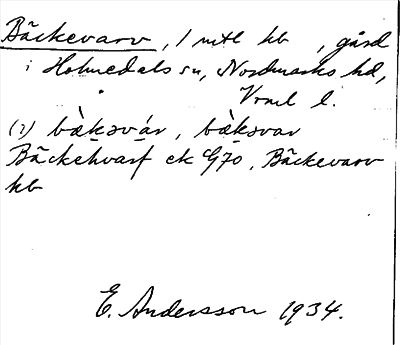 Bäckevarv, 1 mtl kb , gård
i Holmedals sn, Nordmarks hd,
Vrml l.
(?) bà̀kəvár, bàkəvar
Bäckehvarf ek G70, Bäckevarv
kb
E. Andersson 1934.